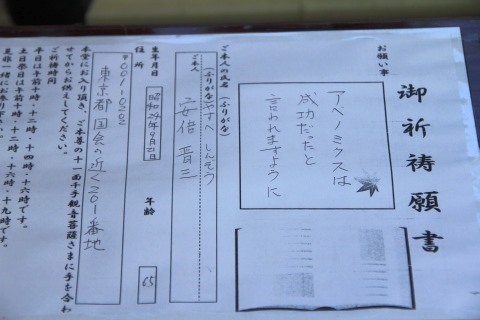 御祈祷願書
お願い事
アベノミクスは
成功だったと
言われますように
ご本人の氏名(ふりがな)
(ふりがな)やすべ しんぞう
ご本人
安倍 晋三
生年月日
昭和29年9月21日
年齢
65
住所
〒001-0202
東京都国会の近く201番地
本堂にお入り頂き、ご本尊の十一面千手観音菩薩さまに手を合わ
せてからお供えしてください。
ご祈祷時間
平日は午前十時・十二時・十四時・十六時です。
土日祭日は午前十時・十二時・十六時・十九時です。